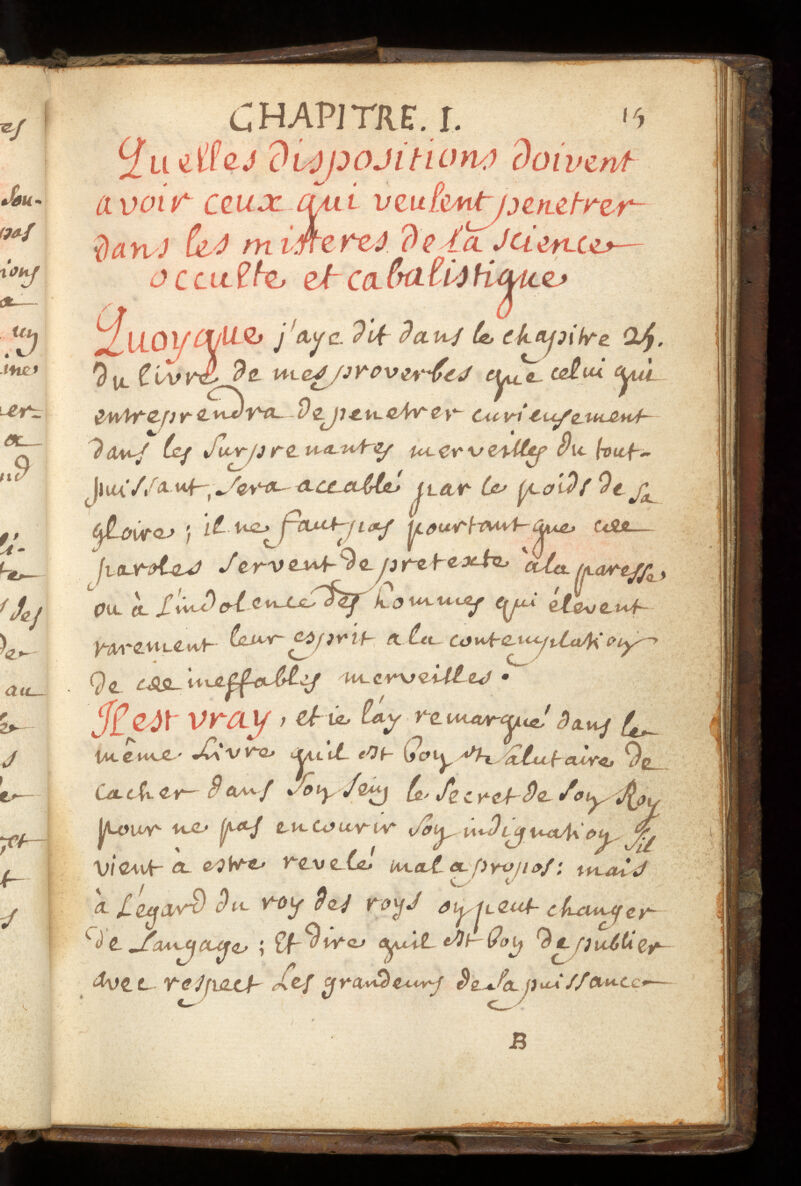 CHAPITRE. I.
15
Quelles dispositions doivent
avoir ceux qui veulent penetrer
dans les misteres de la science
occulte et cabalistique
Quoyque j'aye dit dans le chapitre 25.
du livre de mes proverbes que celui qui
entreprendra de penetrer curieusement
dans les surprenantes merveilles du tout-
puissant, sera accablé par le poids de sa
gloire; il ne faut pas pourtant que ces
paroles servent de pretexte à la paresse
ou à l'indolence des hommes qui élevent
rarement leur esprit a la contemplation
de ces ineffables merveilles.
Il est vray, et ie l'ay remarqué dans le
même Livre quil est bon et salutaire de
cacher dans son sein le secret de son Roy
pour ne pas encourir son indignation sil
vient à estre revelé mal a propos: mais
à L'égard du roy des roys on peut changer
de Langage; Et dire quil est bon de publier
avec respect Les grandeurs de sa puissance
B